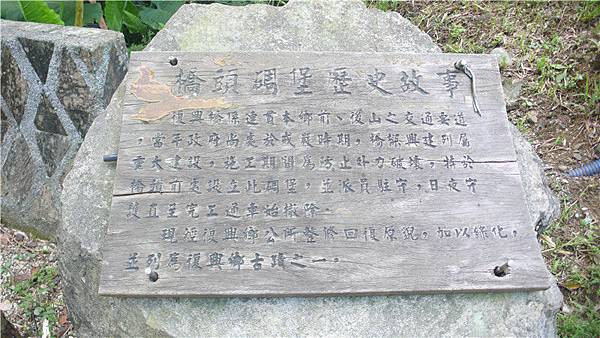 橋頭碉堡歷史故事
復興橋係連貫本鄉前、後山之交通要道
，當年政府尚處於戒嚴時期，橋樑興建列屬
重大建設，施工期間為防止外力破壞，特於
橋頭前處設立此碉堡，並派員駐守，日夜守
設直至完工通車始撤除．
現經復興鄉公所整修回復原貌，加以綠化，
並列為復興鄉古蹟之一。